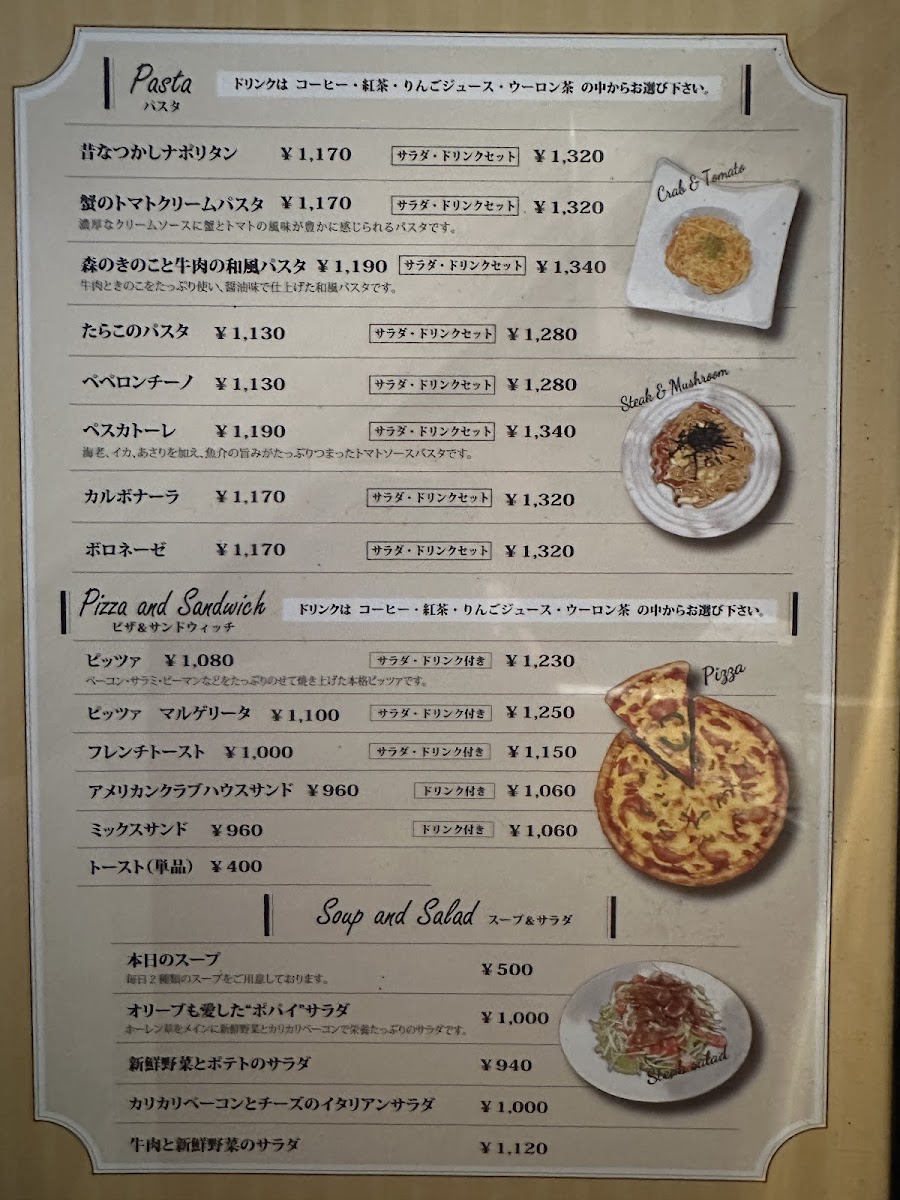 Pasta
パスタ
ドリンクは コーヒー・紅茶・りんごジュース・ウーロン茶 の中からお選び下さい。
昔なつかしナポリタン ¥1,170 サラダ・ドリンクセット ¥1,320
蟹のトマトクリームパスタ ¥1,170 サラダ・ドリンクセット ¥1,320
濃厚なクリームソースに蟹とトマトの風味が豊かに感じられるパスタです。
Crab & Tomato
森のきのこと牛肉の和風パスタ ¥1,190 サラダ・ドリンクセット ¥1,340
牛肉ときのこをたっぷり使い、醤油味で仕上げた和風パスタです。
たらこのパスタ ¥1,130 サラダ・ドリンクセット ¥1,280
ペペロンチーノ ¥1,130 サラダ・ドリンクセット ¥1,280
Steak & Mushroom
ペスカトーレ ¥1,190 サラダ・ドリンクセット ¥1,340
海老、イカ、あさりを加え、魚介の旨みがたっぷりつまったトマトソースパスタです。
カルボナーラ ¥1,170 サラダ・ドリンクセット ¥1,320
ボロネーゼ ¥1,170 サラダ・ドリンクセット ¥1,320
Pizza and Sandwich
ピザ&サンドウィッチ
ドリンクは コーヒー・紅茶・りんごジュース・ウーロン茶 の中からお選び下さい。
ピッツァ ¥1,080 サラダ・ドリンク付き ¥1,230
ベーコン・サラミ・ピーマンなどをたっぷりのせて焼き上げた本格ピッツァです。
Pizza
ピッツァ マルゲリータ ¥1,100 サラダ・ドリンク付き ¥1,250
フレンチトースト ¥1,000 サラダ・ドリンク付き ¥1,150
アメリカンクラブハウスサンド ¥960 ドリンク付き ¥1,060
ミックスサンド ¥960 ドリンク付き ¥1,060
トースト(単品) ¥400
Soup and Salad スープ&サラダ
本日のスープ ¥500
毎日2種類のスープをご用意しております。
オリーブも愛した“ポパイ”サラダ ¥1,000
ホーレン草をメインに新鮮野菜とカリカリベーコンで栄養たっぷりのサラダです。
新鮮野菜とポテトのサラダ ¥940
Steak salad
カリカリベーコンとチーズのイタリアンサラダ ¥1,000
牛肉と新鮮野菜のサラダ ¥1,120